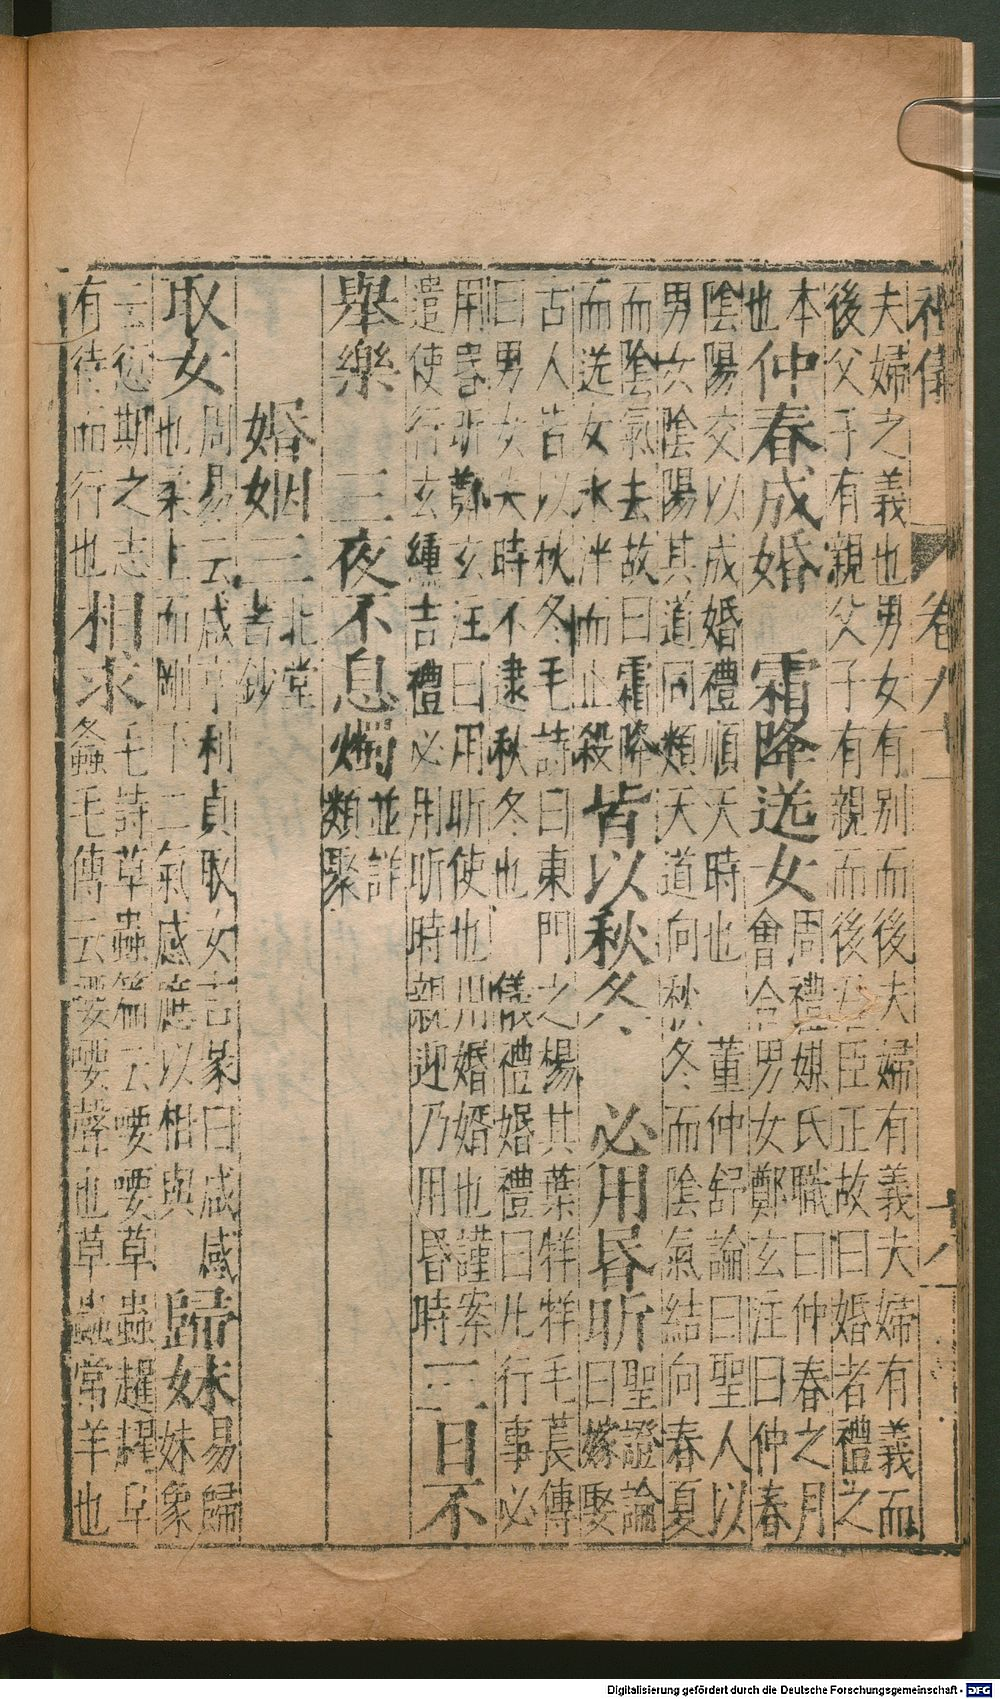 礼儀 卷八 十八
夫婦之義也男女有別而後夫婦有義夫婦有義而
後父子有親父子有親而後君臣正故曰婚者禮之
本也
仲春成婚
周禮媒氏職曰仲春之月
會合男女鄭玄注曰仲春
陰陽交以成婚禮順天時也
霜降送女
董仲舒論曰聖人以
男女陰陽其道同類天道向秋冬而陰氣結向春夏
而陰氣去故曰霜降
而送女氷泮而止殺
皆以秋冬
聖證論
曰嫁娶
古人皆以秋冬毛詩曰東門之楊其葉牂牂毛萇傳
曰男女失時不逮秋冬也
必用昏昕
儀禮婚禮曰凡行事必
用昏昕鄭玄注曰用昕使也用婚婿也謹案
遣使行玄纁吉禮必用昕時親迎乃用昏時
三日不
舉樂 三夜不息燭
並詳
類聚
婚姻三
北堂
書鈔
取女
周易云咸亨利貞取女吉彖曰咸感
也柔上而剛下二氣感應以相與
歸妹
易歸
妹象
云愆期之志
有待而行也
相求
毛詩草蟲篇云喓喓草蟲趯趯阜
螽毛傳云喓喓聲也草蟲常羊也
Digitalisierung gefördert durch die Deutsche Forschungsgemeinschaft - DFG